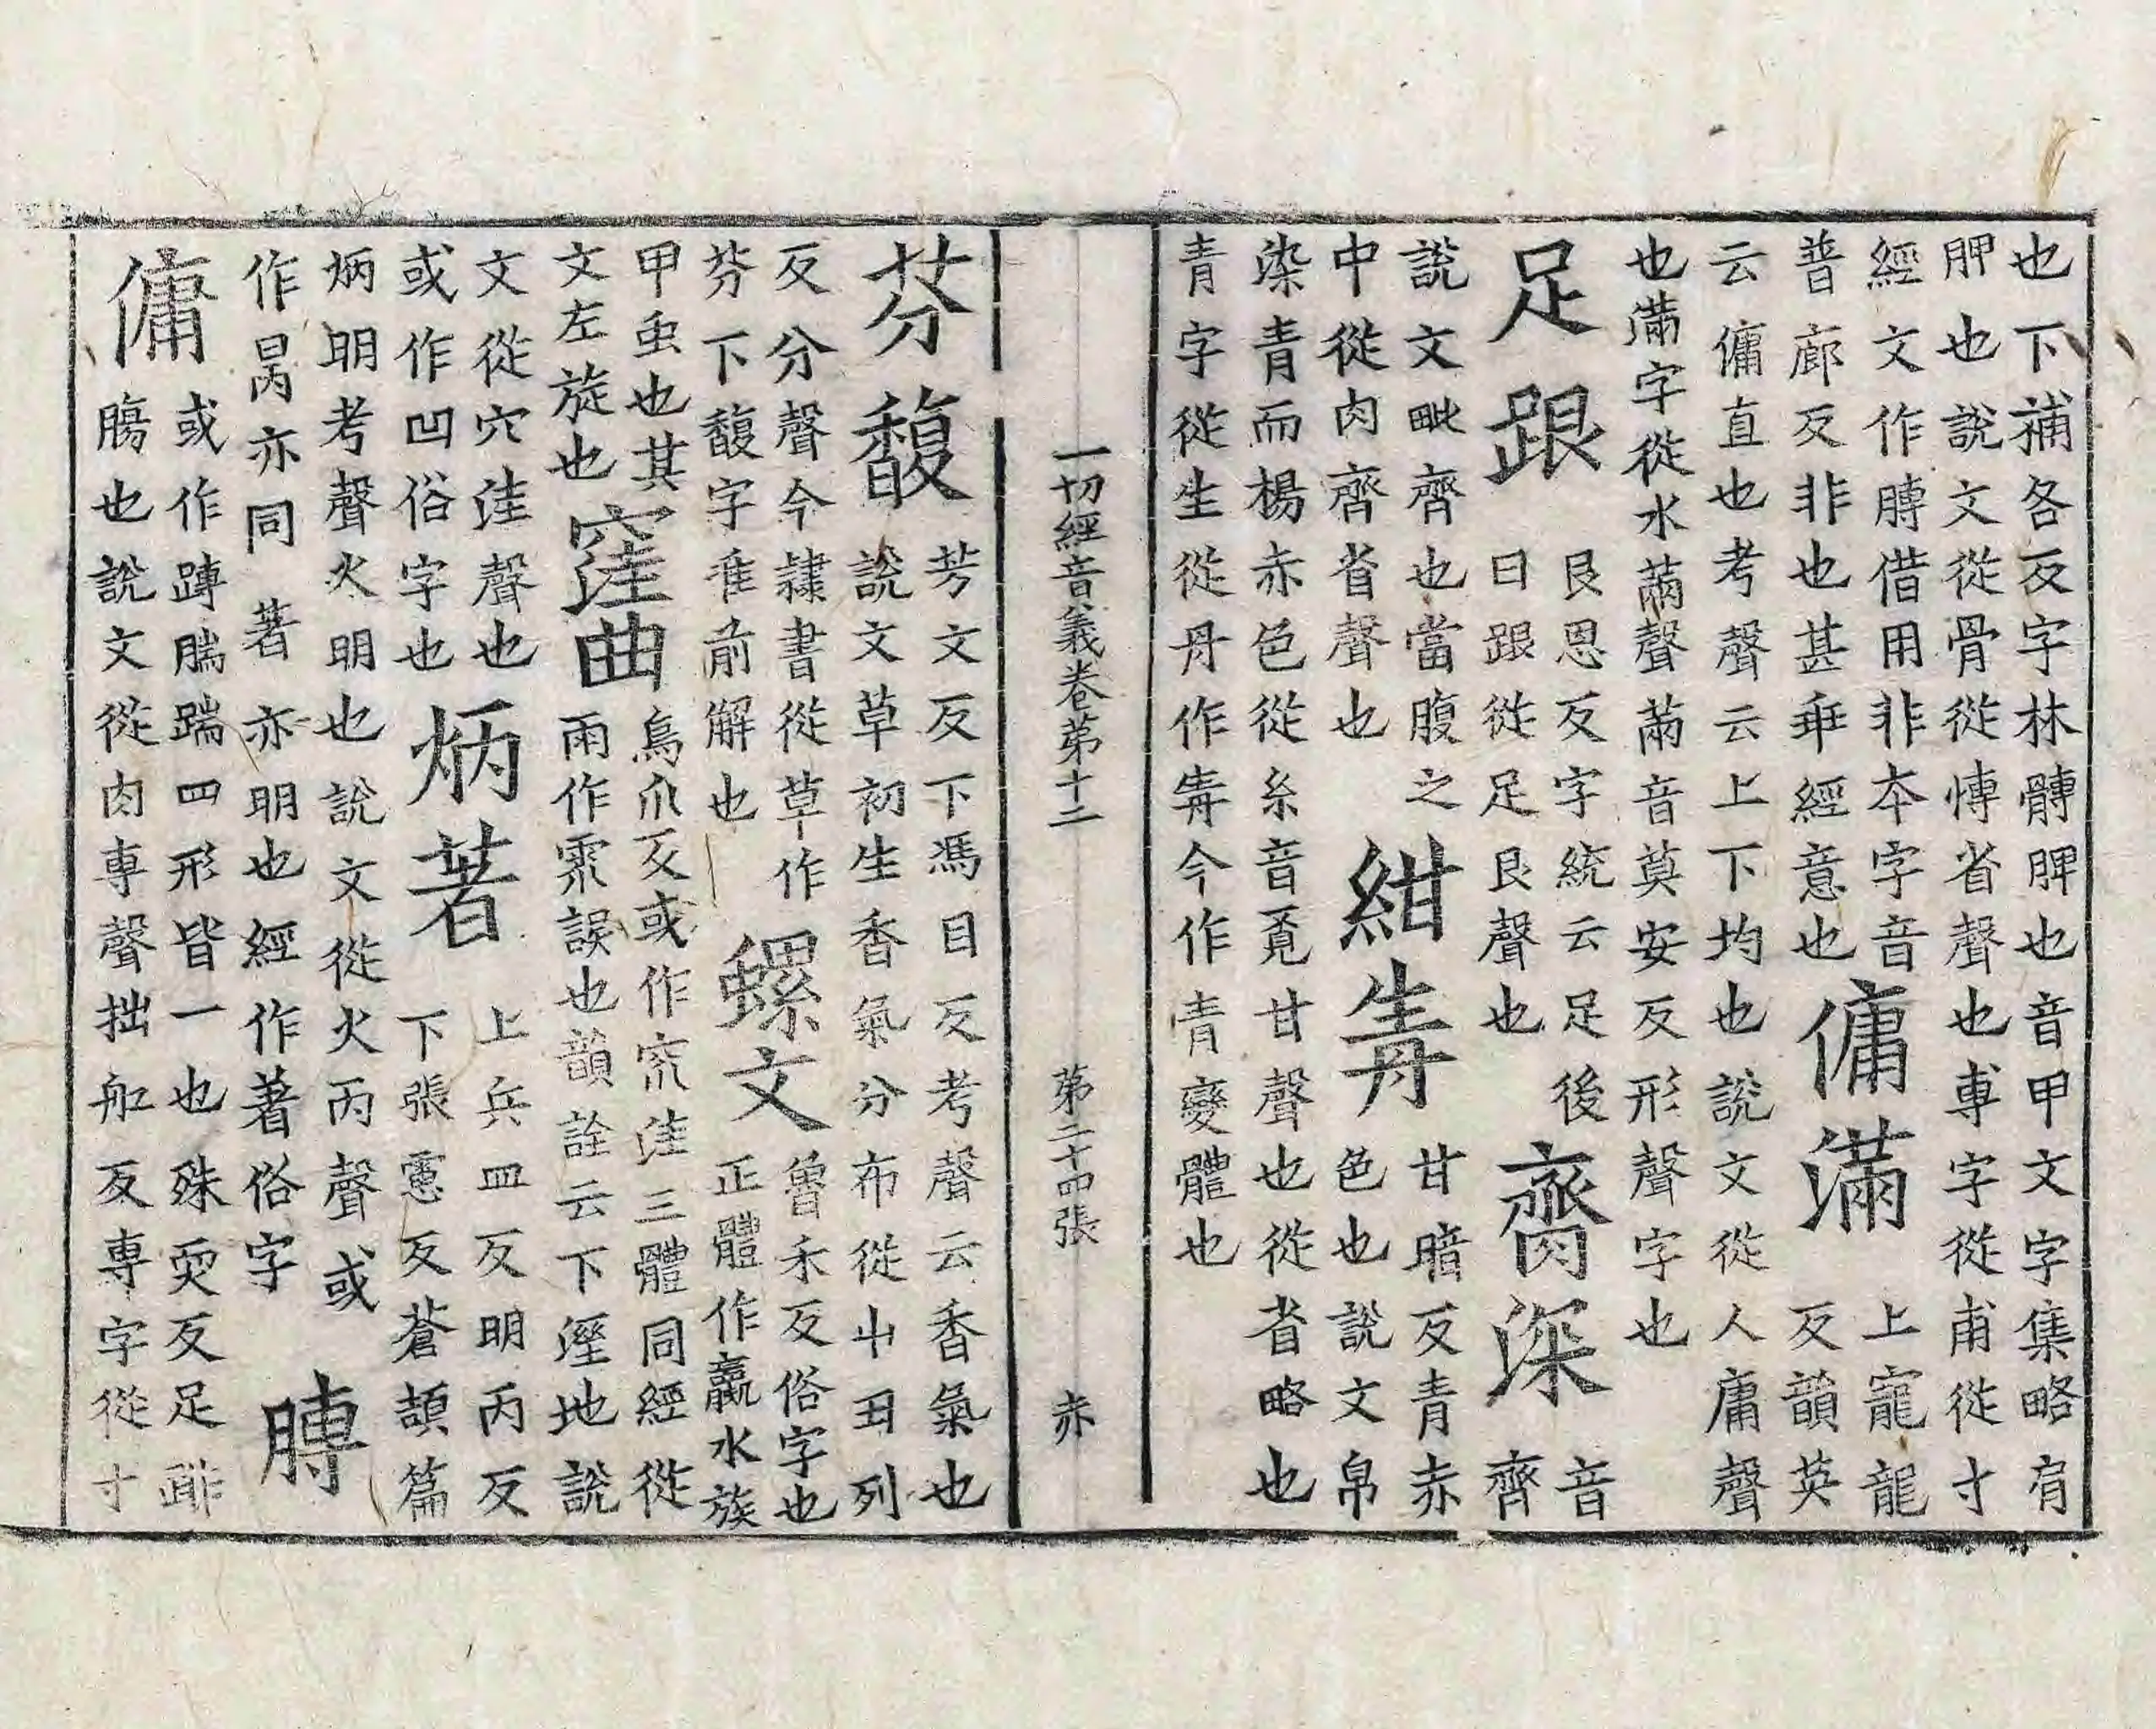 也下補各反字林髆胛也音甲文字集略肩
胛也說文從骨從愽省聲也專字從甫從寸
經文作膊借用非本字音
普廊反非也甚乖經意也
傭滿
上寵龍
反韻英
云傭直也考聲云上下均也說文從人庸聲
也滿字從水㒼聲㒼音莫安反形聲字也
足跟
艮恩反字統云足後
曰跟從足艮聲也
齎深
音
齊
說文毗齊也當腹之
中從肉齊省聲也
紺靑
甘暗反青赤
色也說文帛
染青而楊赤色從糸音覓甘聲也從省略也
青字從生從丹作靑今作青變體也
一切經音義卷第十二 第二十四張 赤
芬馥
芳文反下馮目反考聲云香氣也
說文草初生香氣分布從屮田列
反分聲今隷書從草作
芬下馥字准前解也
螺文
魯禾反俗字也
正體作蠃水族
甲虫也其
文左旋也
窪曲
烏爪反或作窊洼三體同經從
雨作䨟誤也韻詮云下溼地說
文從穴洼聲也
或作凹俗字也
炳著
上兵皿反明丙反
下張慮反蒼頡篇
炳明考聲火明也說文從火丙聲或
作昺亦同著亦明也經作著俗字
膊
傭
或作蹲腨踹四形皆一也殊耎反足腓
腸也說文從肉專聲拙船反專字從寸